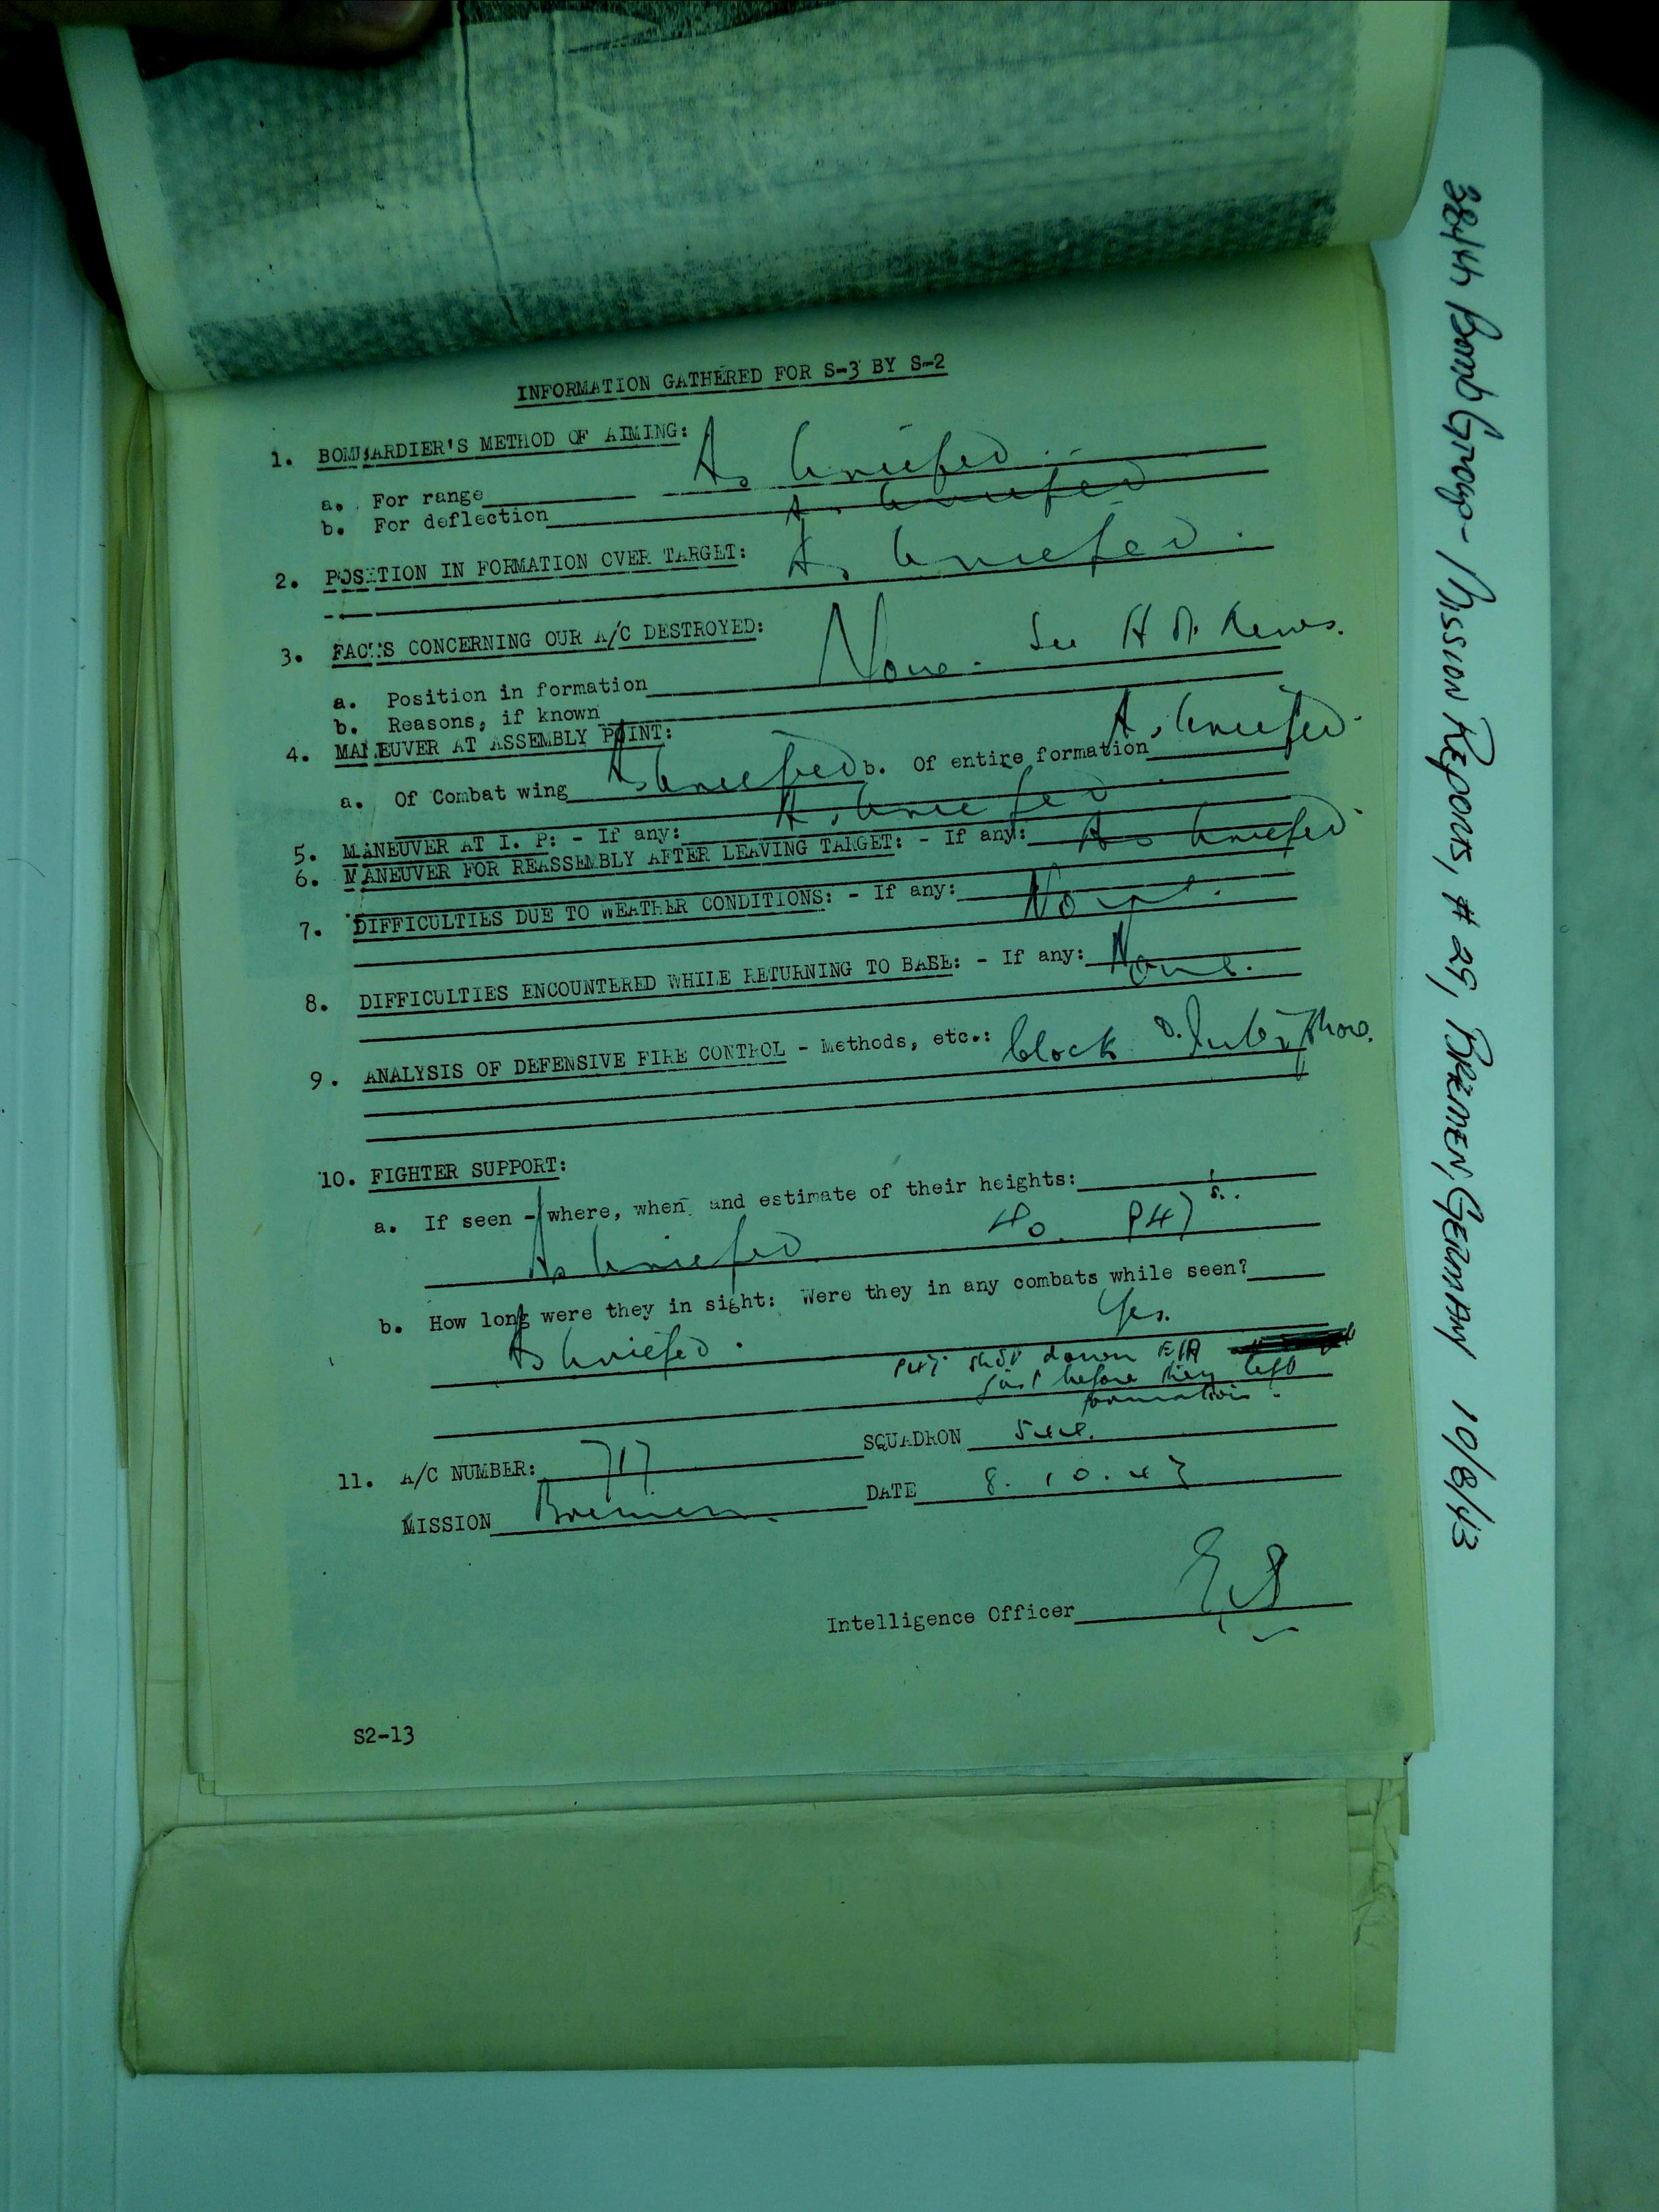 INFORMATION GATHERED FOR S-3 BY S-2
1. BOMBARDIER'S METHOD OF AIMING: As briefed
a. For range
b. For deflection As briefed
2. POSITION IN FORMATION OVER TARGET: As briefed.
3. FACTS CONCERNING OUR A/C DESTROYED:
a. Position in formation None. See
b. Reasons, if known
4. MANEUVER AT ASSEMBLY POINT:
a. Of Combat wing As briefed b. Of entire formation As briefed
5. MANEUVER AT I. P: - If any: As briefed
6. MANEUVER FOR REASSEMBLY AFTER LEAVING TARGET: - If any: As briefed
7. DIFFICULTIES DUE TO WEATHER CONDITIONS: - If any: None.
8. DIFFICULTIES ENCOUNTERED WHILE RETURNING TO BASE: - If any: None.
9. ANALYSIS OF DEFENSIVE FIRE CONTROL - Methods, etc.: Clock & Interphone.
10. FIGHTER SUPPORT:
a. If seen - where, when and estimate of their heights:
As briefed 40. P47's..
b. How long were they in sight: Were they in any combats while seen?
As briefed. Yes.
P47 shot down E/A
just before they left
formation.
11. A/C NUMBER: 717 SQUADRON
MISSION Bremen. DATE 8.10.43
Intelligence Officer
S2-13
384th Bomb Group - Mission Reports, # 29, BREMEN, GERMANY 10/8/43